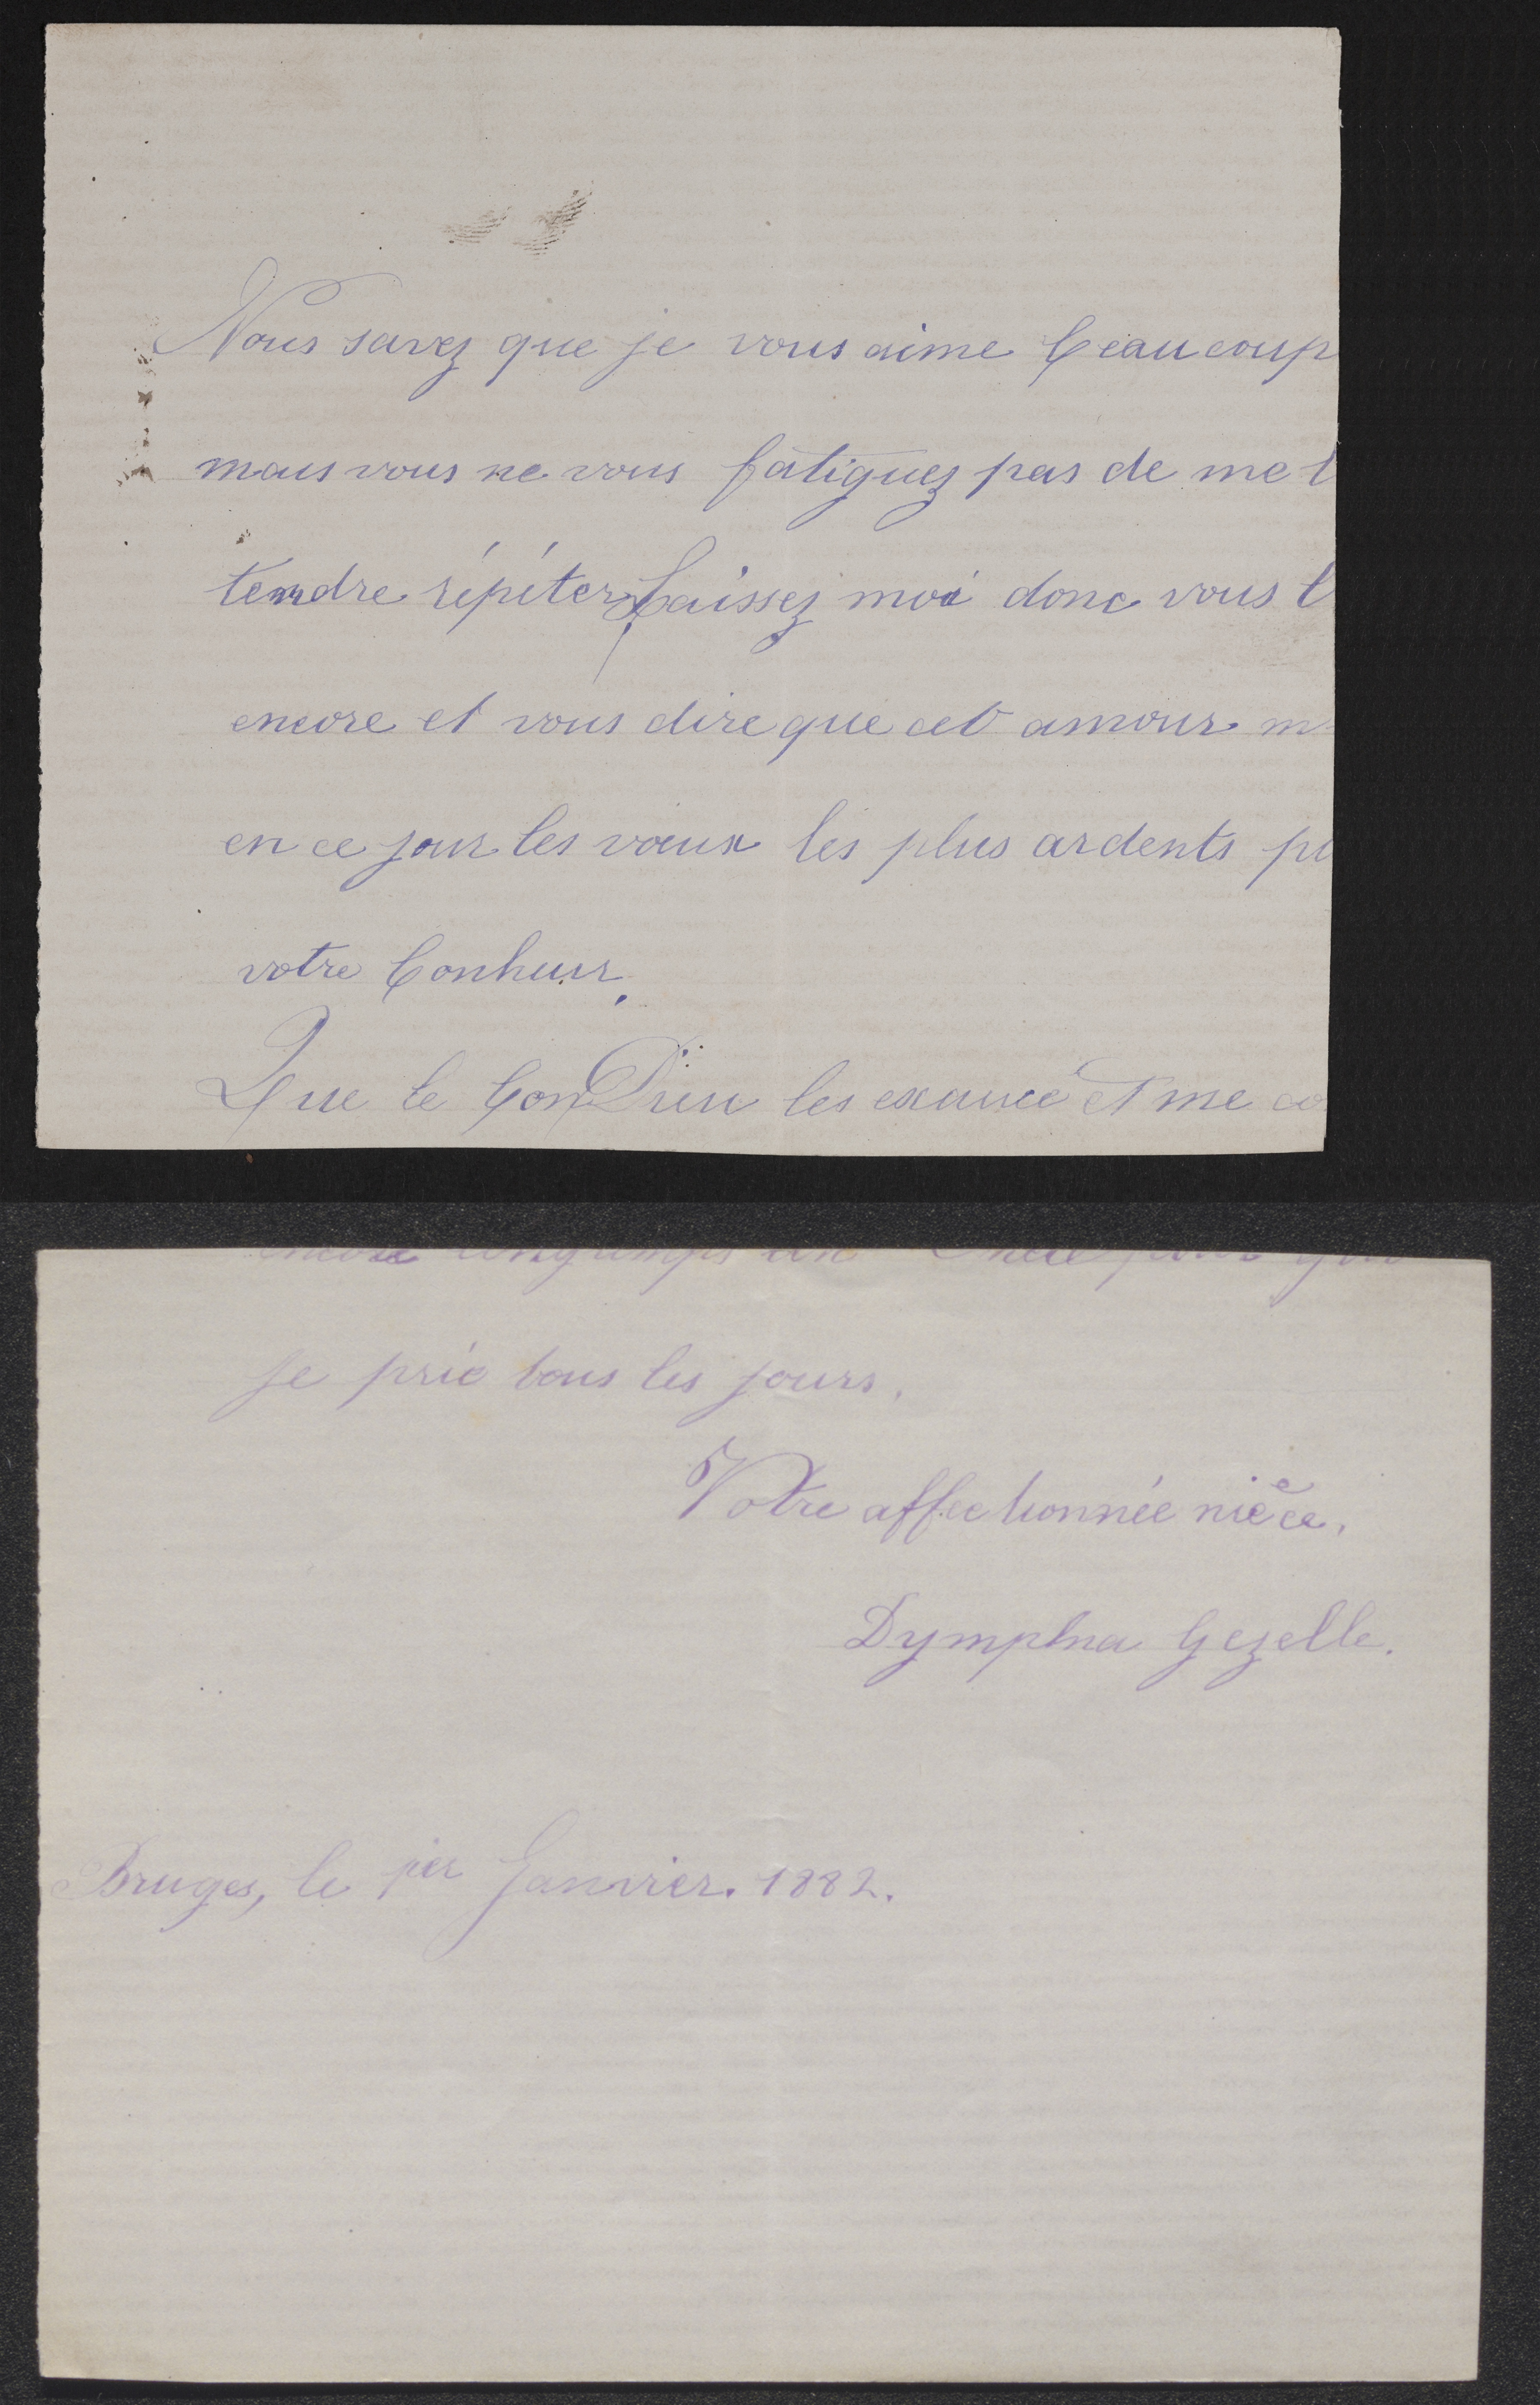 Vous savez que je vous aime beaucoup
mais vous ne vous fatiguez pas de me l
tendre répéter, Laissez moi donc vous l
encore et vous dire que cet amour m
en ce jour les vœux les plus ardents po
votre bonheur.
Que le bon Dieu les exauce et me co
encore longtemps un Oncle pour qui
je prie tous les jours.
Votre affectionnée nièce.
Dymphna Gezelle.
Bruges, le 1ier Janvier. 1882.